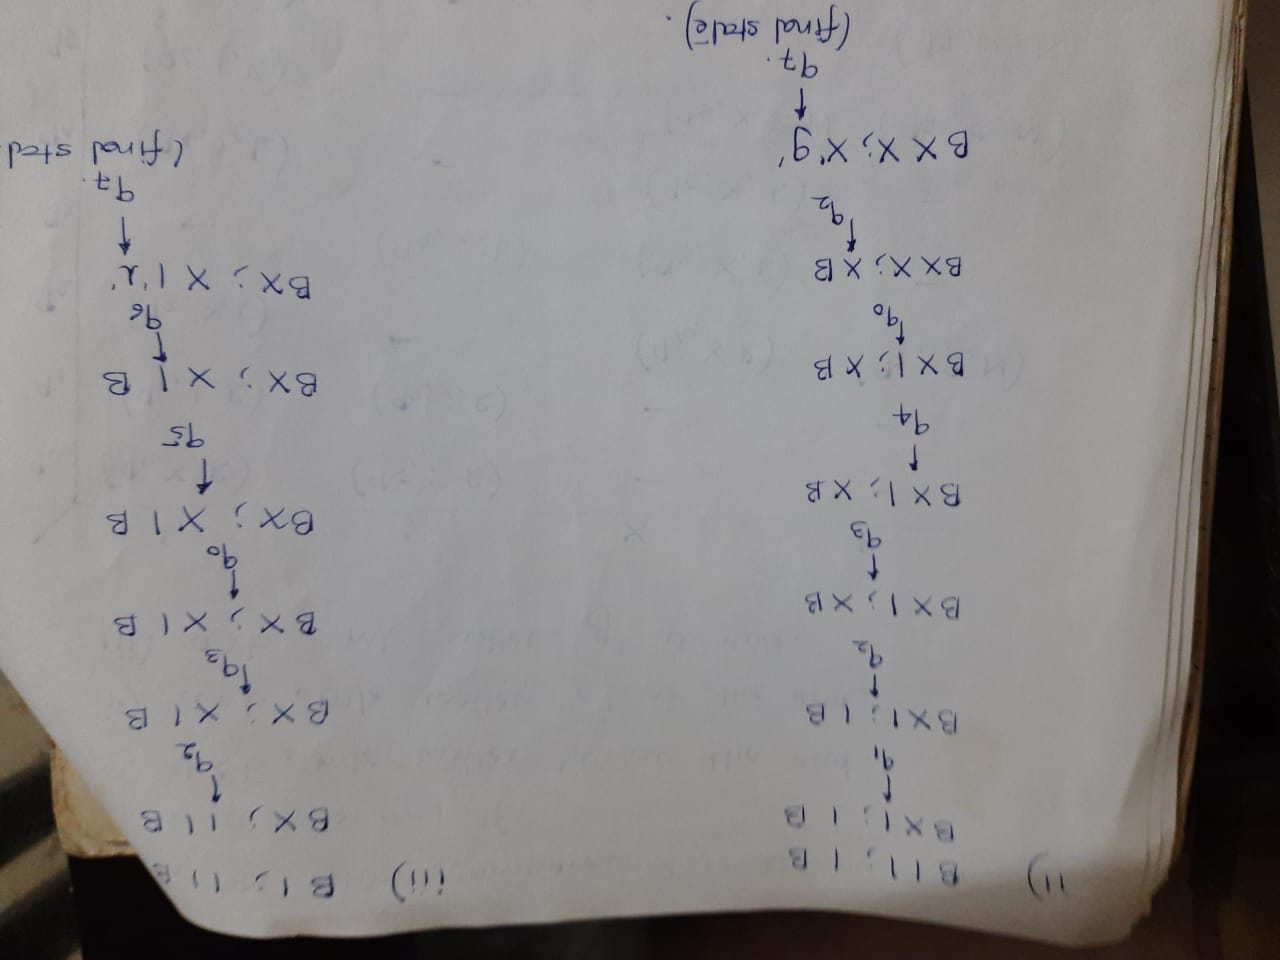 ii) B 1 1 ; 1 B
B X 1 ; 1 B
↑
q1
B X 1 ; 1 B
↑
q2
B X 1 ; X B
↑
q3
B X 1 ; X B
↑
q4
B X 1 ; X B
↑
q0
B X X ; X B
↑
q2
B X X ; X 'g'
↑
q7.
(final state).
iii) B 1 ; 1 1 B
B X ; 1 1 B
↑
q2
B X ; X 1 B
↑
q3
B X ; X 1 B
↑
q0
B X ; X 1 B
↑
q5
B X ; X 1 B
↑
q6
B X ; X 1 'l'
↑
q7.
(final